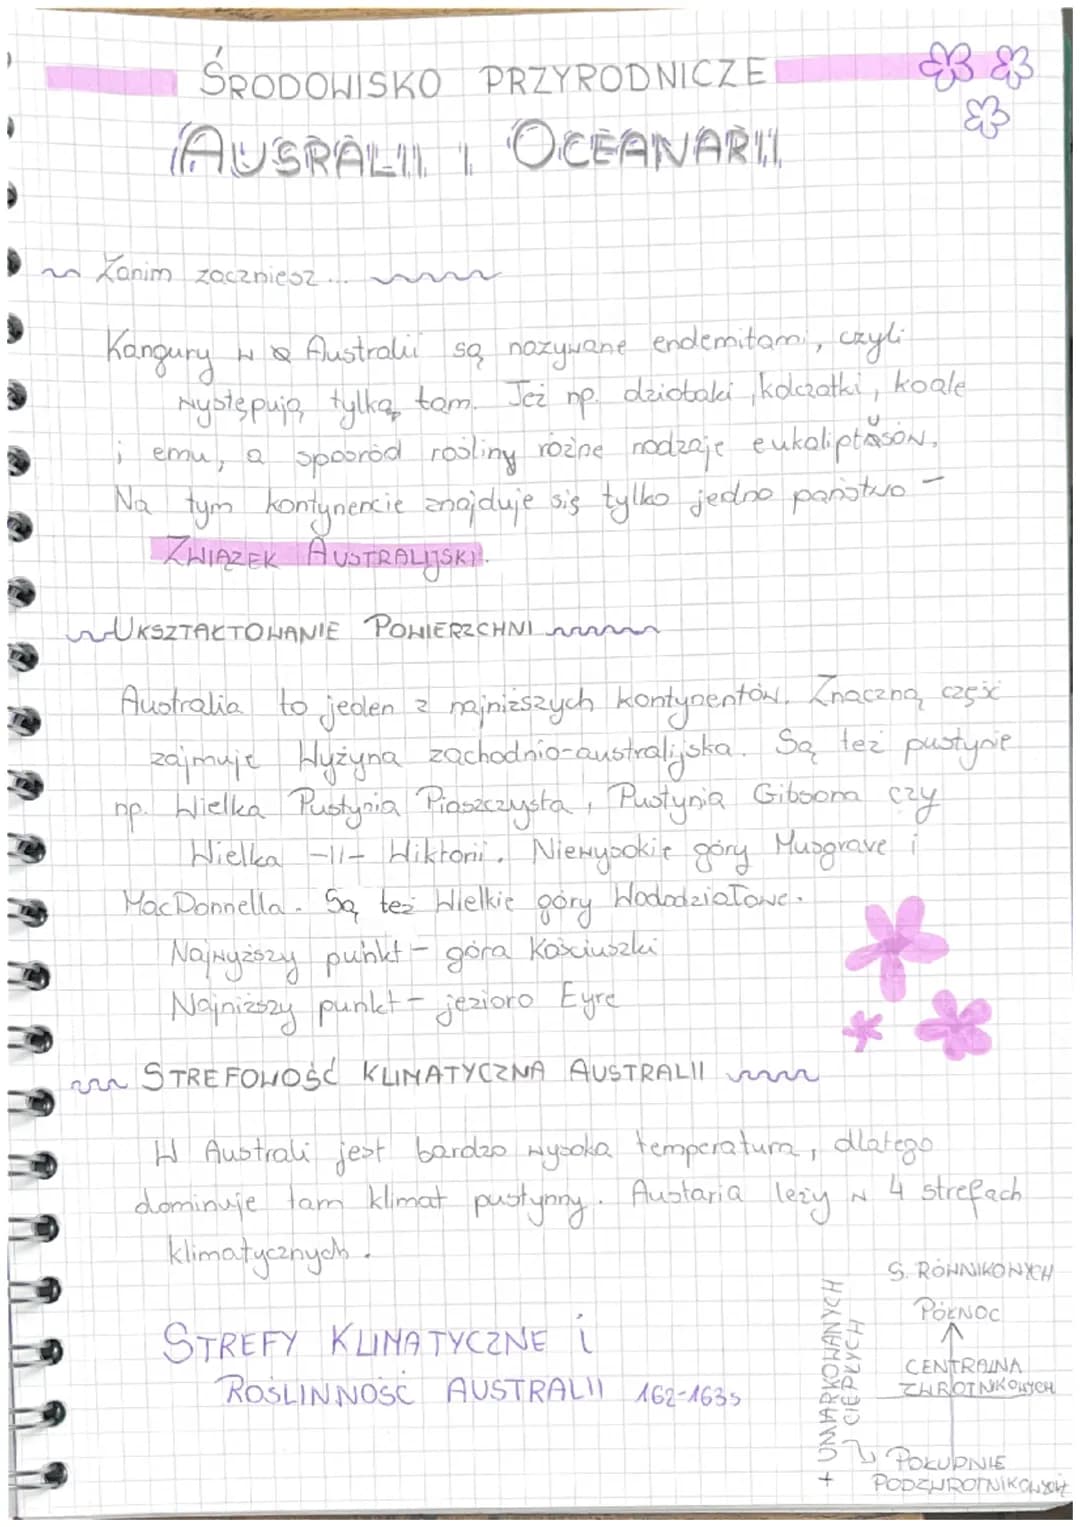 ŚRODOWISKO PRZYRODNICZE
AUSRALII I OCEANARII
Zanim zaczniesz...
Kangury w Australii są nazywane endemitami, czyli
występują tylko tam. Też np. dziobaki, kolczatki, koale
i emu, a spośród rośliny różne rodzaje eukaliptusów.
Na tym kontynencie znajduje się tylko jedno państwo -
ZWIĄZEK AUSTRALIJSKI.
UKSZTAŁTOWANIE POWIERZCHNI
Australia to jeden z najniższych kontynentów. Znaczną część
zajmuje Wyżyna zachodnio-australijska. Są też pustynie
np. Wielka Pustynia Piaszczysta, Pustynia Gibsona czy
Wielka -11- Wiktorii. Niewysokie góry Musgrave i
MacDonnella. Są też Wielkie góry Wododziałowe.
Najwyższy punkt - góra Kościuszki
Najniższy punkt - jezioro Eyre
STREFOWOŚĆ KLIMATYCZNA AUSTRALII
W Australi jest bardzo wysoka temperatura, dlatego
dominuje tam klimat pustynny. Austaria leży w 4 strefach
klimatycznych.
STREFY KLIMATYCZNE i
ROŚLINNOŚĆ AUSTRALII 162-163s
S. RÓWNIKOWYCH
PÓŁNOC
CENTRALNA
ZWROTNIKOWYCH
POŁUDNIE
PODZWROTNIKOWYCH
+ UMIARKOWANYCH
CIEPŁYCH